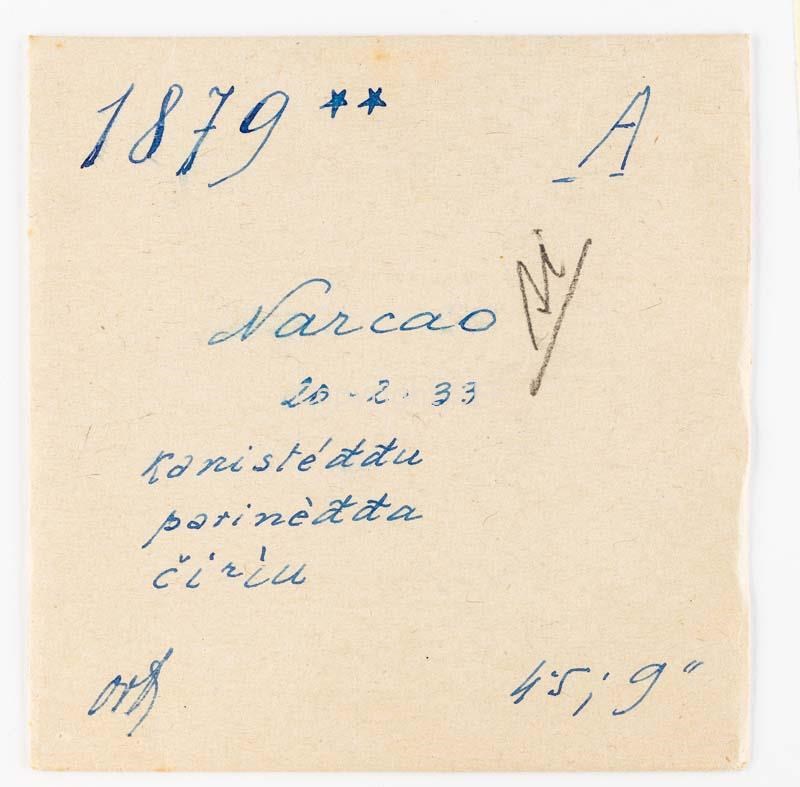 1879 ** A
Narcao
20-2-33
kanisté́đđu
parinèđđa
čirìu
45; 9"